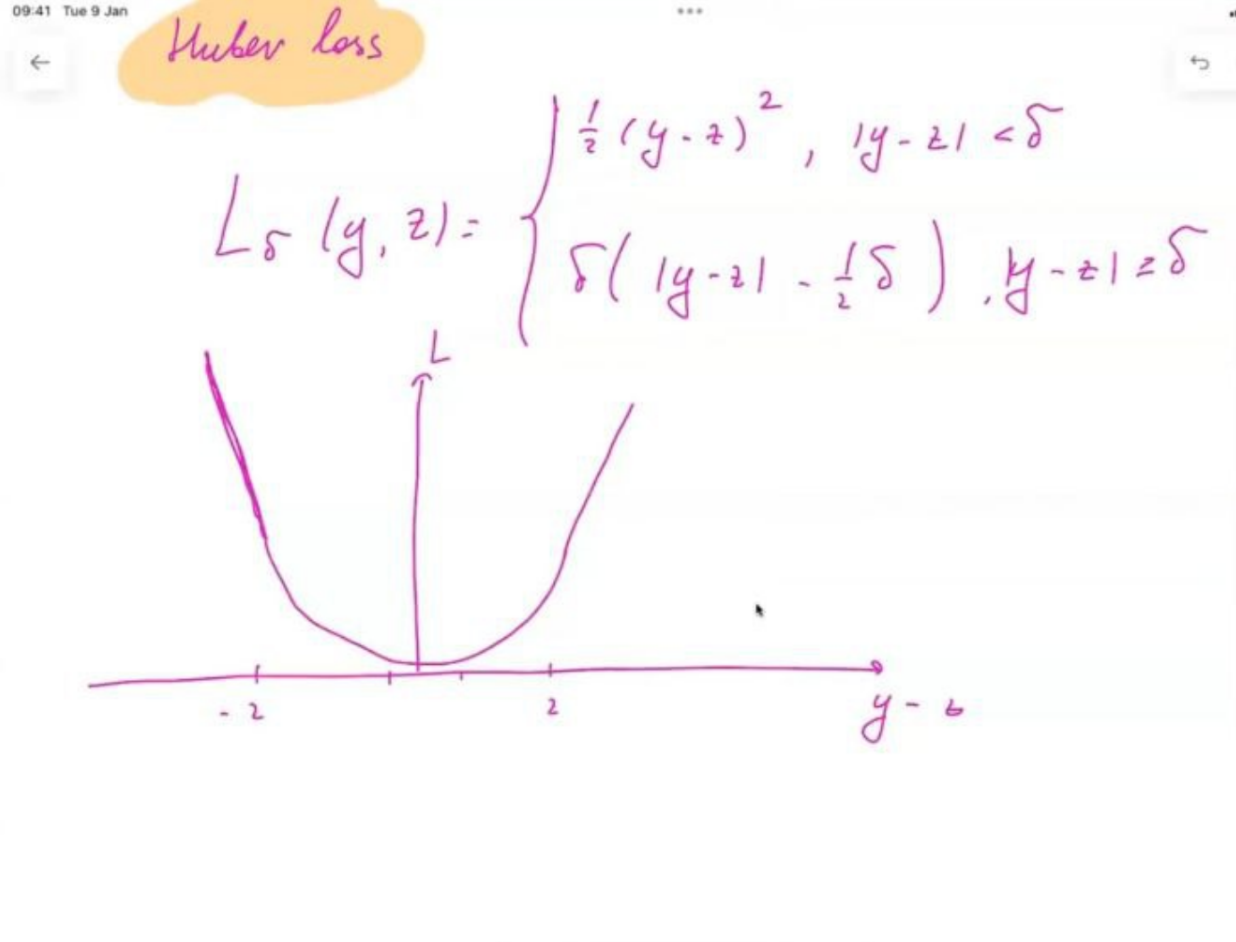 09:41 Tue 9 Jan
Huber loss
½ (y - z)², |y - z| < δ
L_δ (y, z) =
δ( |y - z| - ½ δ ), |y - z| ≥ δ
L
- 2
2
y - z